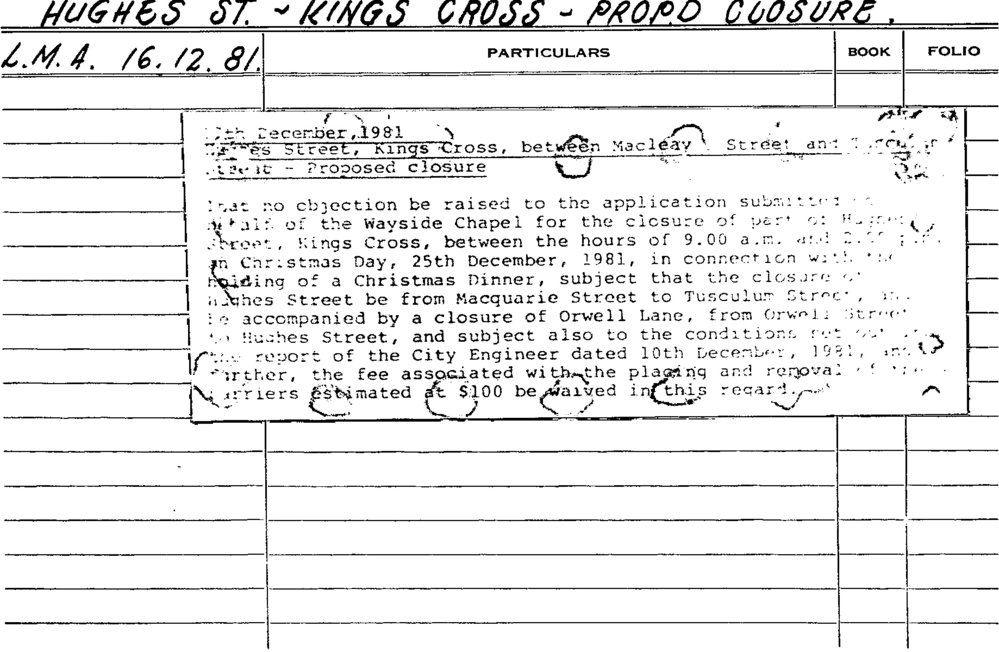 HUGHES ST. - KINGS CROSS - PROP.D CLOSURE.
L.M.A. 16.12.81. PARTICULARS BOOK FOLIO
December, 1981
Street, Kings Cross, between Macleay Street and
- Proposed closure
that no objection be raised to the application submitted
of the Wayside Chapel for the closure of part of Hughes
Street, Kings Cross, between the hours of 9.00 a.m. and
on Christmas Day, 25th December, 1981, in connection with the
holding of a Christmas Dinner, subject that the closure of
Hughes Street be from Macquarie Street to Tusculum Street,
be accompanied by a closure of Orwell Lane, from Orwell Street
to Hughes Street, and subject also to the conditions set out
the report of the City Engineer dated 10th December, 1981, and
further, the fee associated with the placing and removal of
barriers estimated at $100 be waived in this regard.